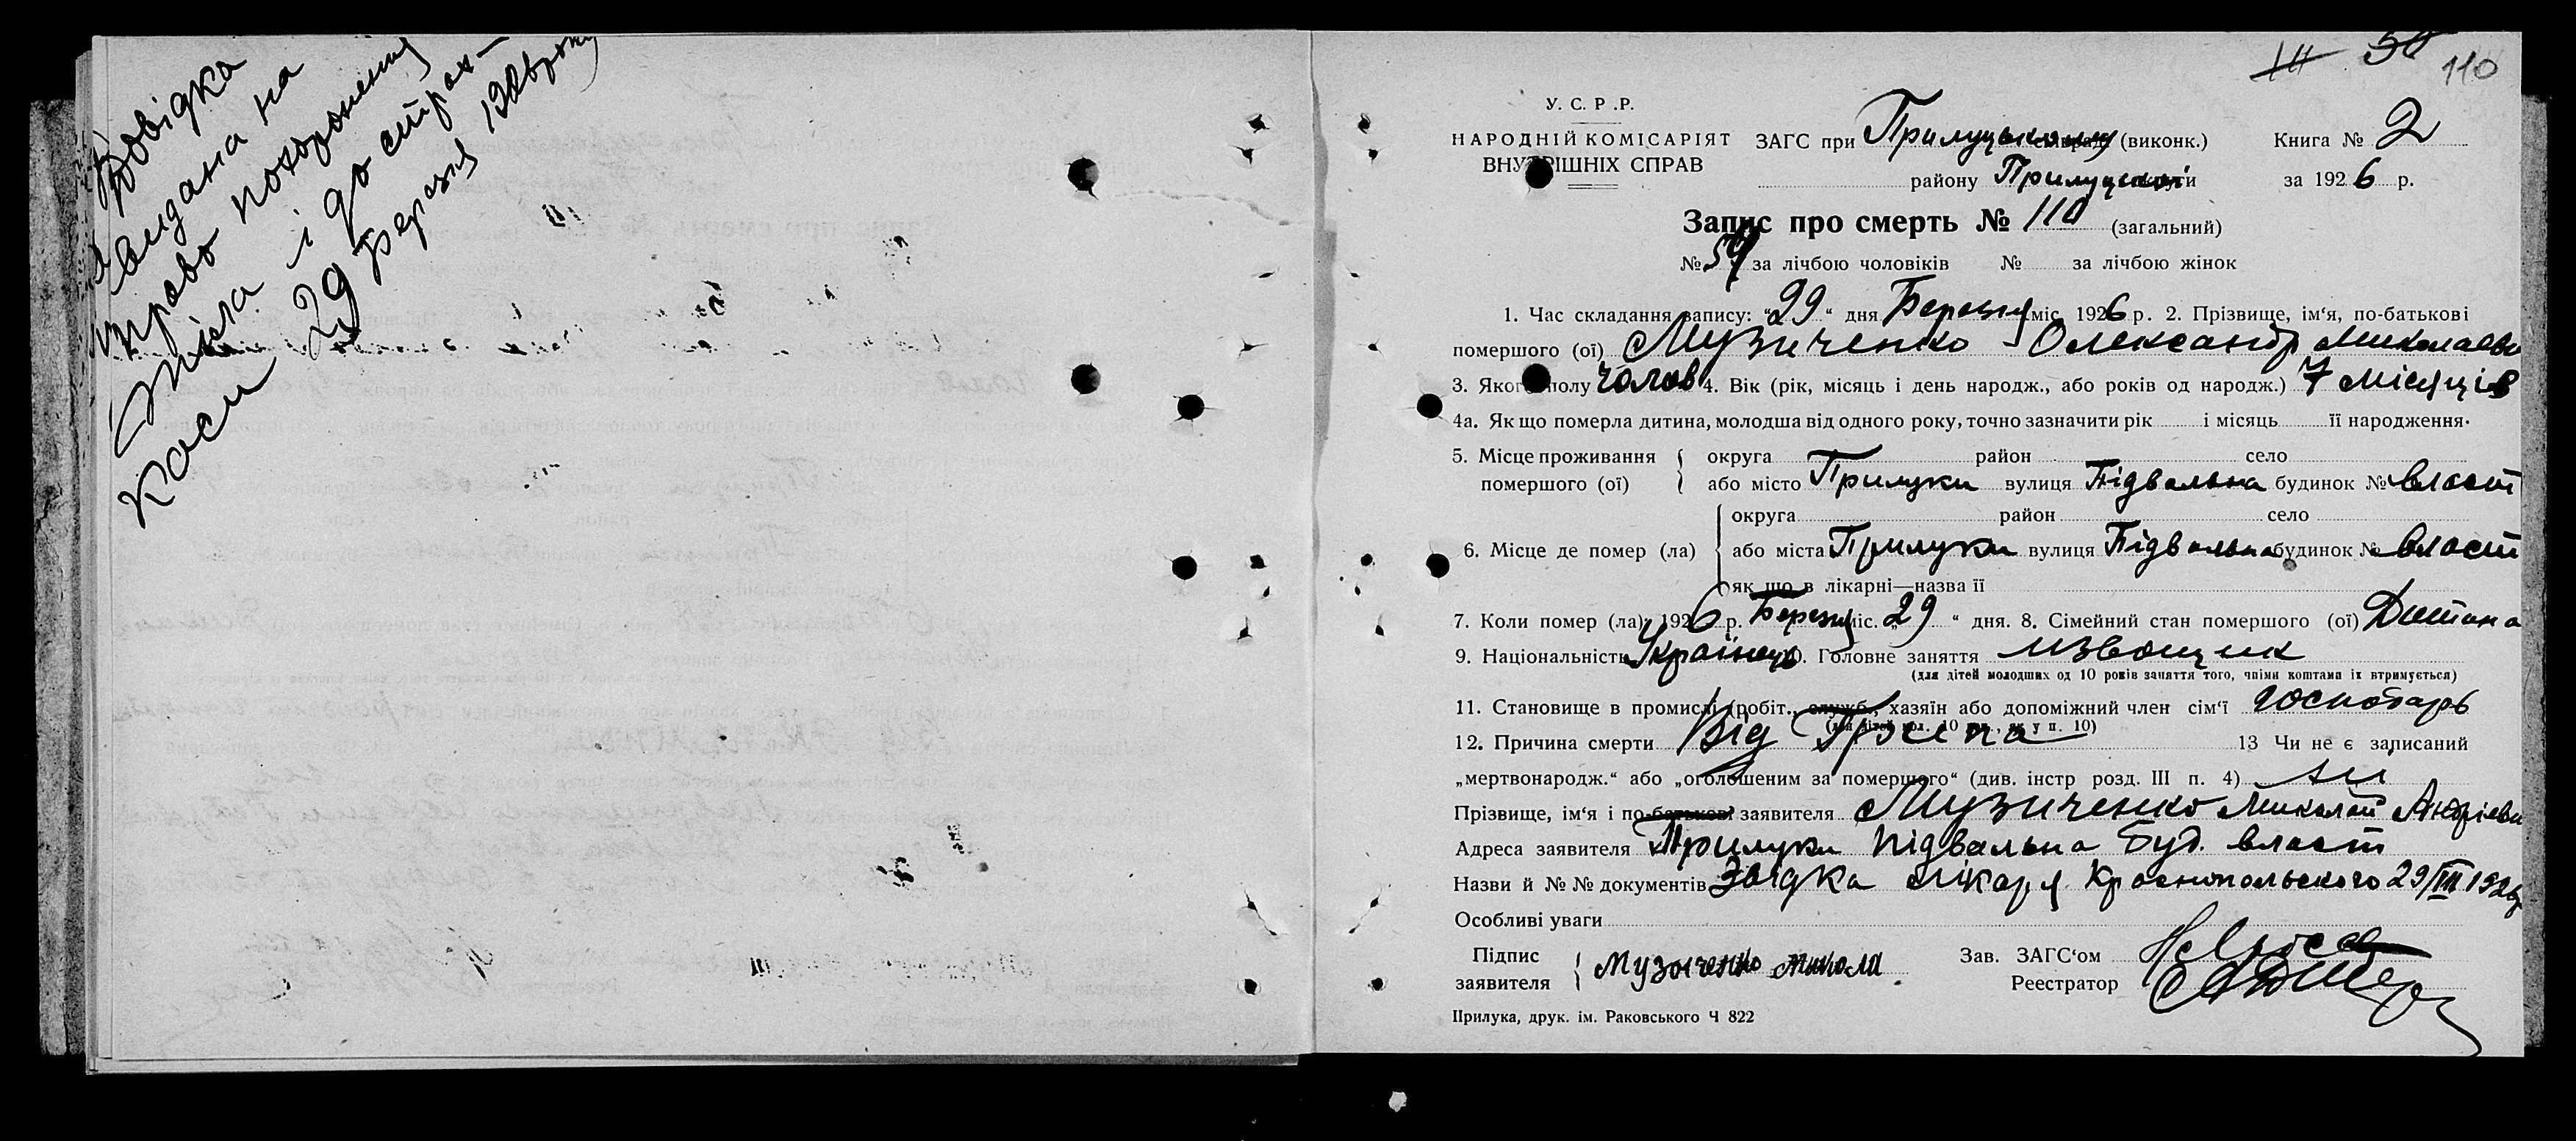 Довідка
видана на
право похоронения
тіла і до страх-
каси 29 березня 1926 року
50
110
У. С. Р. Р.
НАРОДНІЙ КОМІСАРІЯТ
ВНУТРІШНІХ СПРАВ
ЗАГС при Прилуцькому (виконк.)
району Прилуцької
Книга № 2
за 1926 р.
Запис про смерть № 110 (загальний)
№ 59 за лічбою чоловіків № за лічбою жінок
1. Час складання запису: "29" дня Березня міс. 1926 р. 2. Прізвище, ім'я, по-батькові
помершого (ої) Музиченко Олександр Миколаєви
3. Якого полу чолов 4. Вік (рік, місяць і день народж., або років од народж.) 7 місяців
4а. Як що померла дитина, молодша від одного року, точно зазначити рік і місяць її народження.
5. Місце проживання помершого (ої) { округа район село
або місто Прилуки вулиця Підвальна будинок № власт
6. Місце де помер (ла) { округа район село
або міста Прилуки вулиця Підвальна будинок № власт
як що в лікарні—назва її
7. Коли помер (ла) 1926 р. Березня міс. „29“ дня. 8. Сімейний стан помершого (ої) Дитина
9. Національність Українець 10. Головне заняття извощик
(для дітей молодших од 10 років заняття того, чиїми коштами їх втримується)
11. Становище в промислі (робіт., служб., хазяїн або допоміжний член сім'ї господарь
12. Причина смерти Від 13 Чи не є записаний
„мертвонародж.“ або „оголошеним за помершого“ (див. інстр розд. III п. 4) ни
Прізвище, ім'я і по-батькові заявителя Музиченко Миколай Андрієви
Адреса заявителя Прилуки Підвальна буд. власт
Назви й №№ документів Звідка лікаря Краснопольского 29/III 1926
Особливі уваги
Підпис заявителя { Музыченко Микола
Зав. ЗАГС'ом
Реєстратор
Прилука, друк. ім. Раковського Ч 822